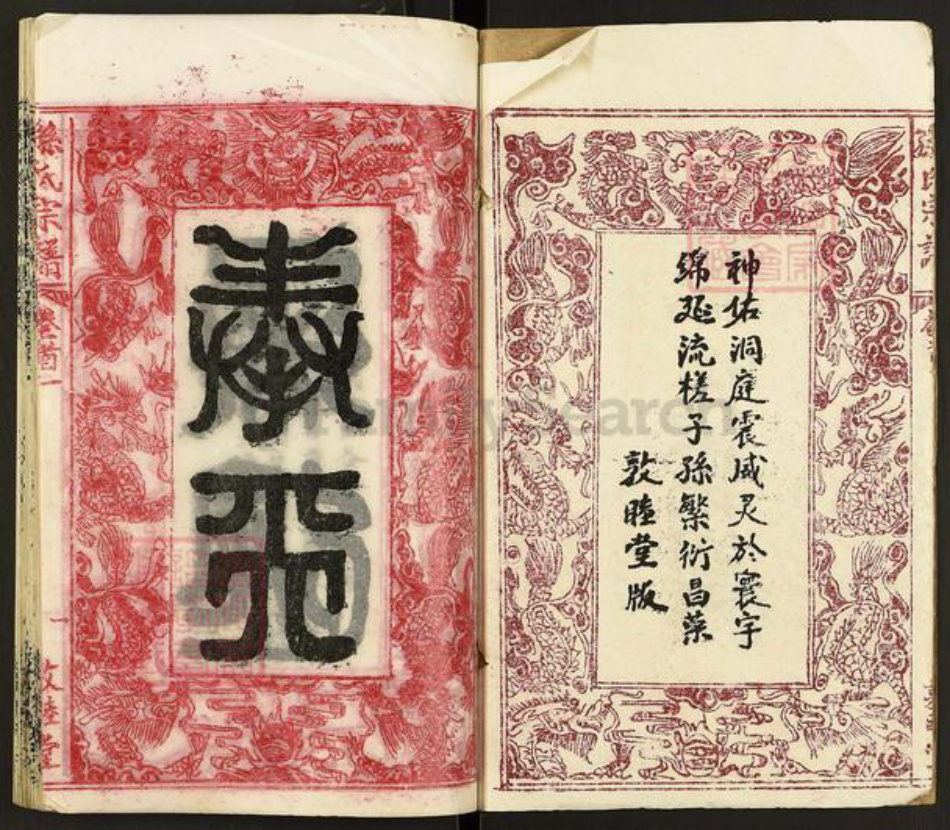 神佑洞庭震威灵於寰宇
綿延流槎子孫繁衍昌荣
敦睦堂版
奉天
孫氏宗譜
卷首
一
敦睦堂
FamilySearch